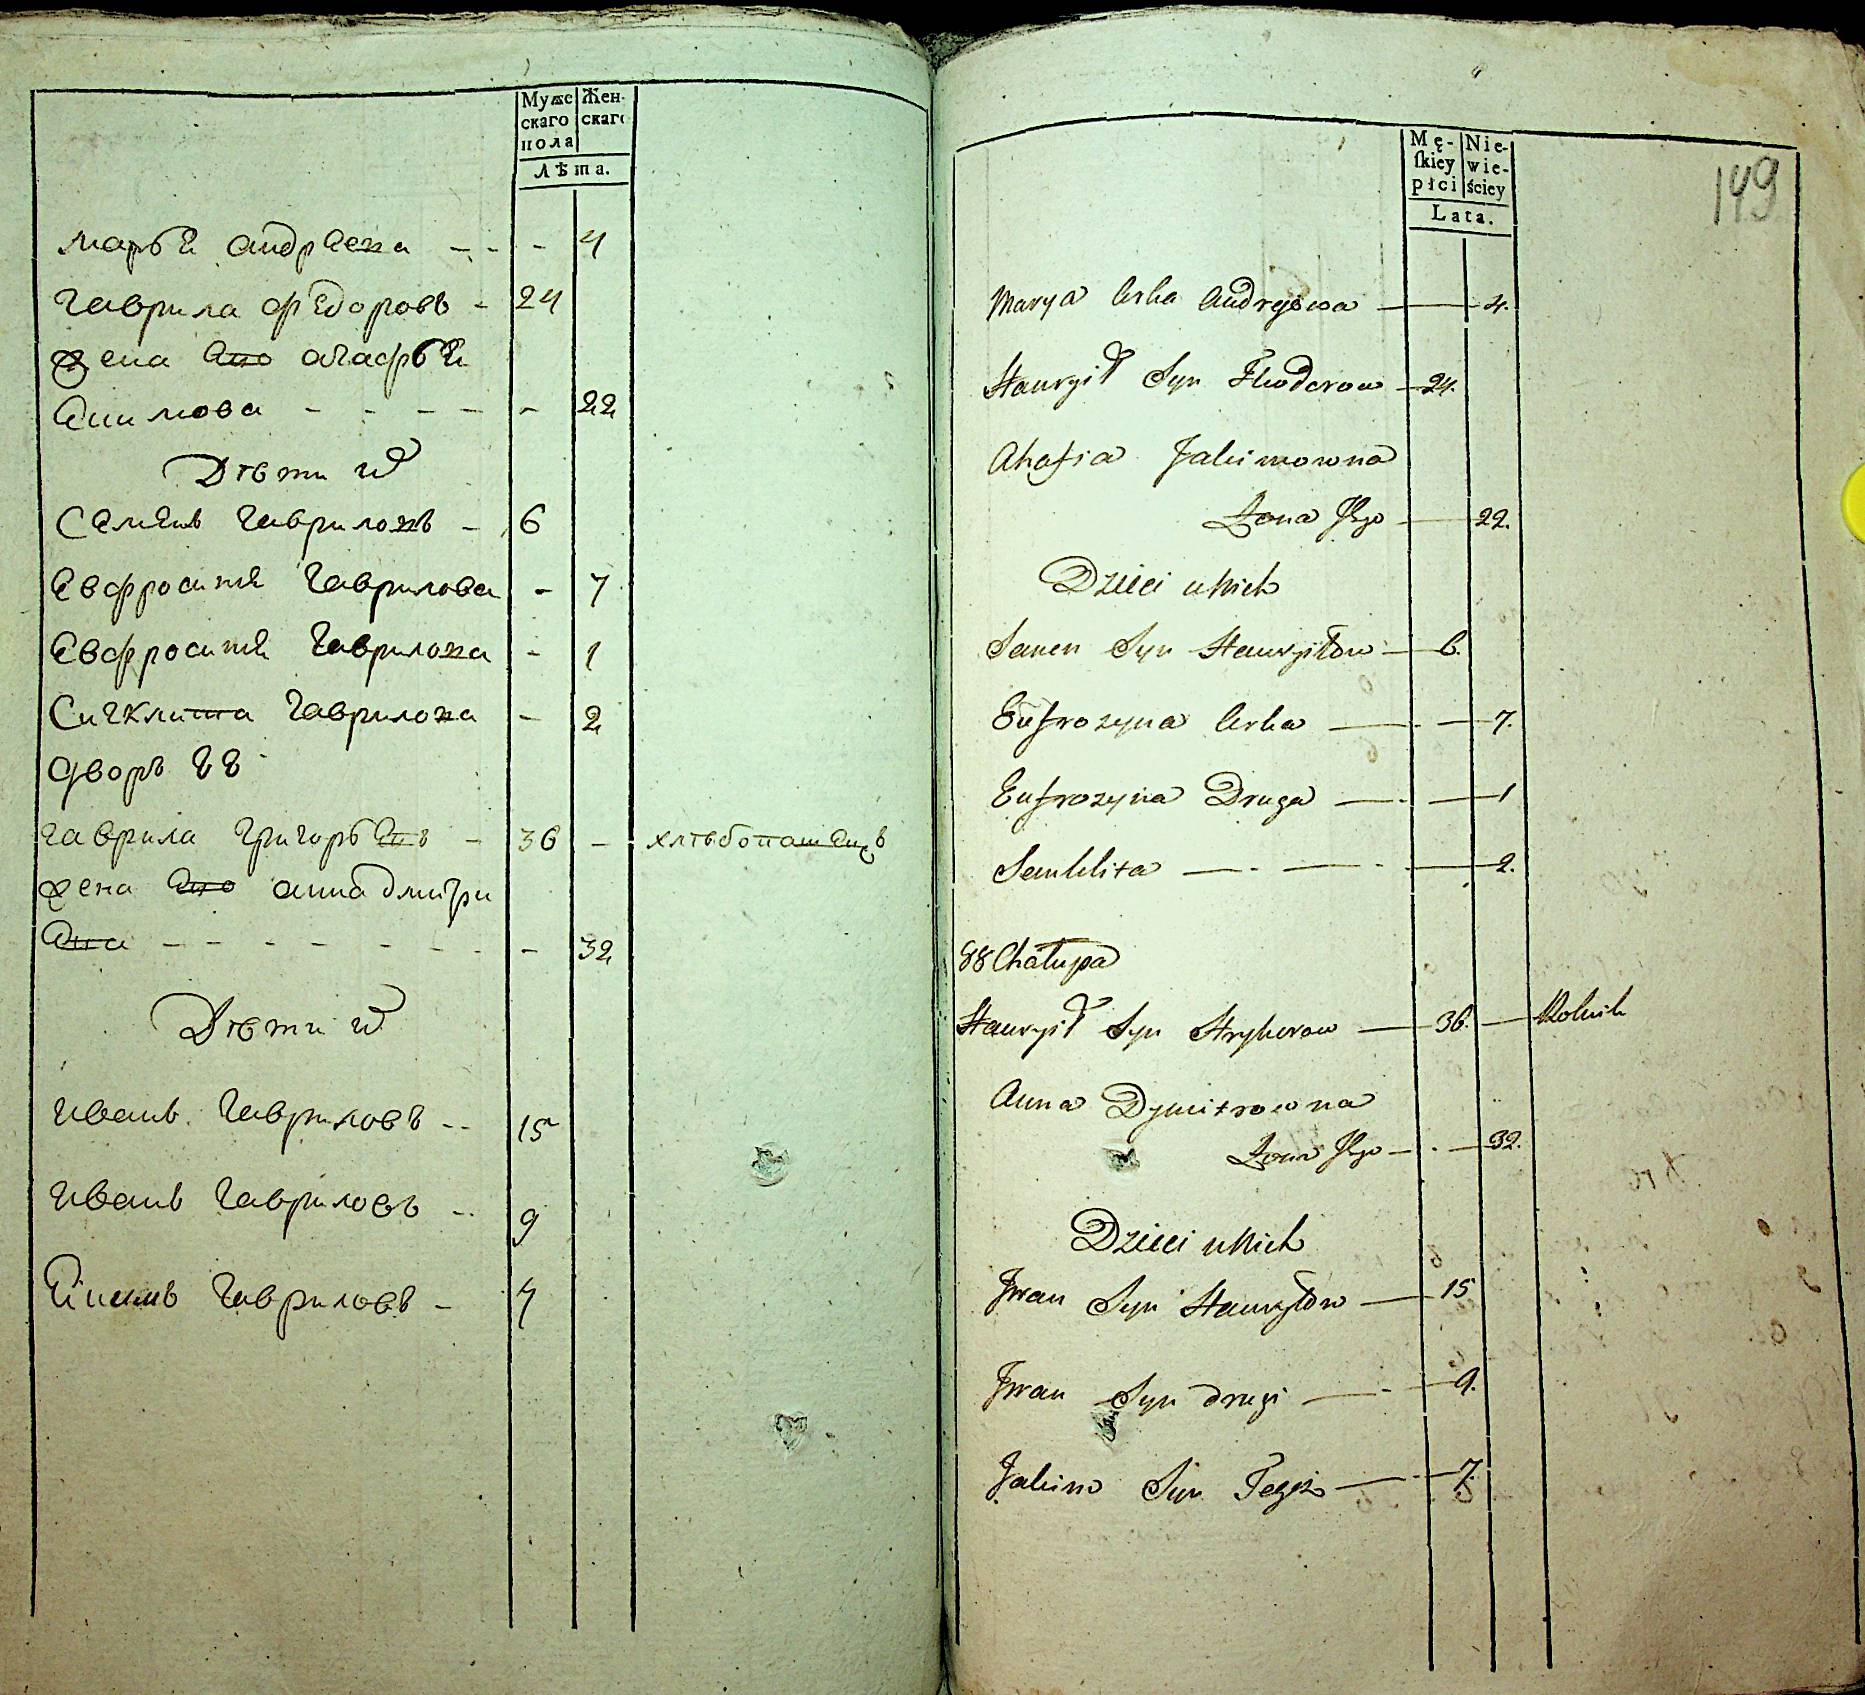 Мужескаго пола
Женскаго
Лѣта.
марья андреева - - - 4
гаврила федоровъ - 24
жена его агафья
якимова - - - - - 22
Дѣти ихъ
семенъ гавриловъ - 6
евфросиния гаврилова - 7
евфросиния гаврилова - 1
сигклитиа гаврилова - 2
дворъ 88
гаврила григорьевъ - 36 - хлѣбопашецъ
жена его анна дмитри
ева - - - - - - - - 32
Дѣти ихъ
иванъ гавриловъ - - 15
иванъ гавриловъ - - 9
якимъ гавриловъ - 7
149
Męskiey płci
Niewieściey
Lata.
Marya Crka Andrejowa — 4.
Hawrył Syn Fhedorow — 24.
Ahafia Jakimowna
Żona Jego — 22.
Dzieci u Nich
Semen Syn Hawryłow — 6.
Eufrozyna Crka — 7.
Eufrozyna Druga — 1
Senklita — 2.
88 Chałupa
Hawrył Syn Hryhorow — 36. — Rolnik
Anna Dymitrowna
Żona Jego — 32.
Dzieci u Nich
Jwan Syn Hawryłow — 15
Jwan Syn drugi — 9.
Jakim Syn Tegoż — 7.